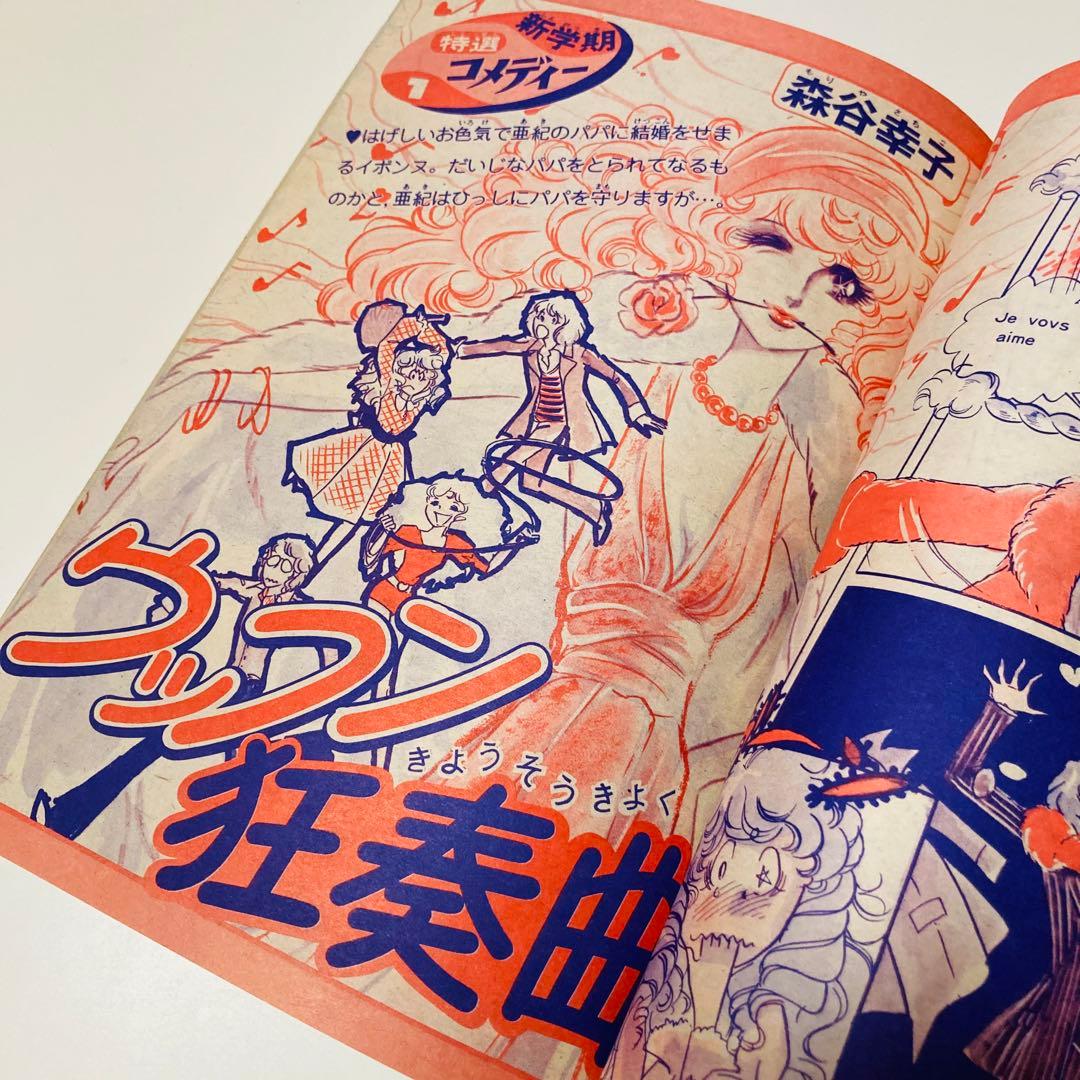 新学期
特選
コメディー
1
もりやさちこ
森谷幸子
♥はげしいお色気で亜紀のパパに結婚をせま
るイボンヌ。だいじなパパをとられてなるも
のかと、亜紀はひっしにパパを守りますが…。
ウッフン
きょうそうきよく
狂奏曲
Je vovs
aime